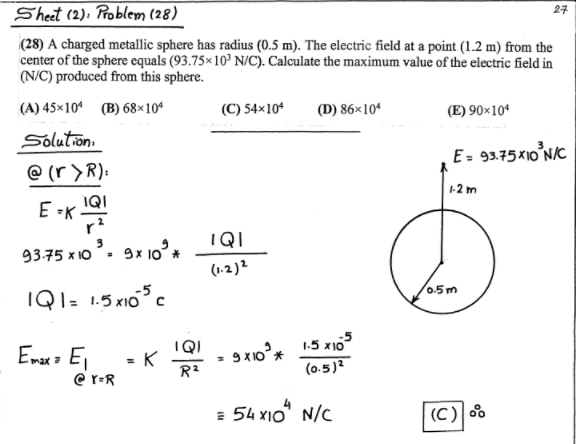 Sheet (2): Problem (28)
27
(28) A charged metallic sphere has radius (0.5 m). The electric field at a point (1.2 m) from the
center of the sphere equals (93.75×10³ N/C). Calculate the maximum value of the electric field in
(N/C) produced from this sphere.
(A) 45×10⁴ (B) 68×10⁴ (C) 54×10⁴ (D) 86×10⁴ (E) 90×10⁴
Solution:
@ (r > R):
E = K |Q| / r²
93.75 × 10³ = 9 × 10⁹ * |Q| / (1.2)²
|Q| = 1.5 × 10⁻⁵ C
E = 93.75 × 10³ N/C
1.2 m
0.5 m
Emax = E| @ r=R = K |Q| / R² = 9 × 10⁹ * 1.5 × 10⁻⁵ / (0.5)²
= 54 × 10⁴ N/C
(C) ∴